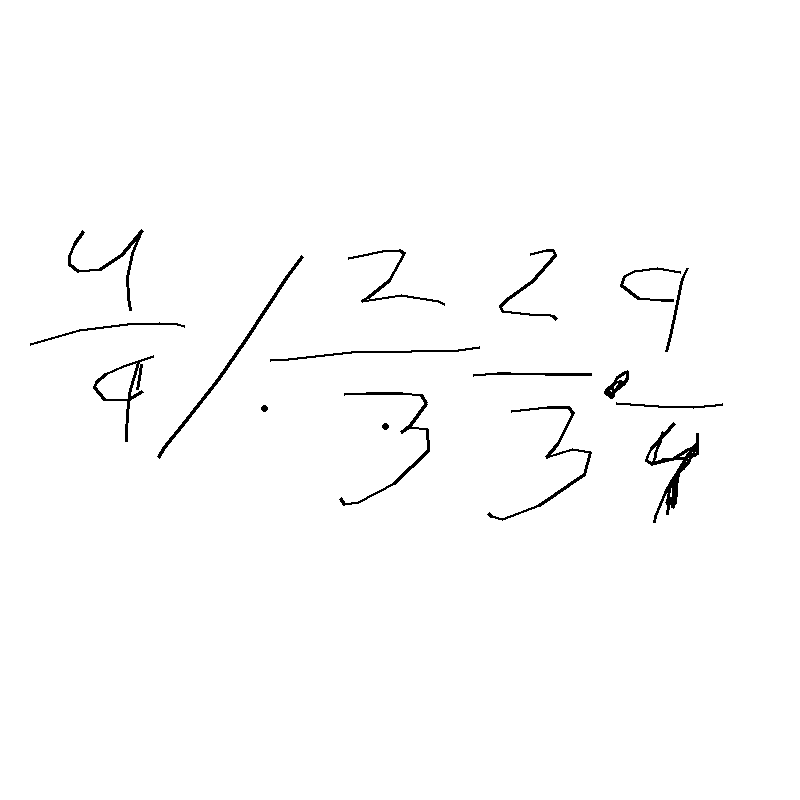 4/9 / 2/3 2/3 · 9/4